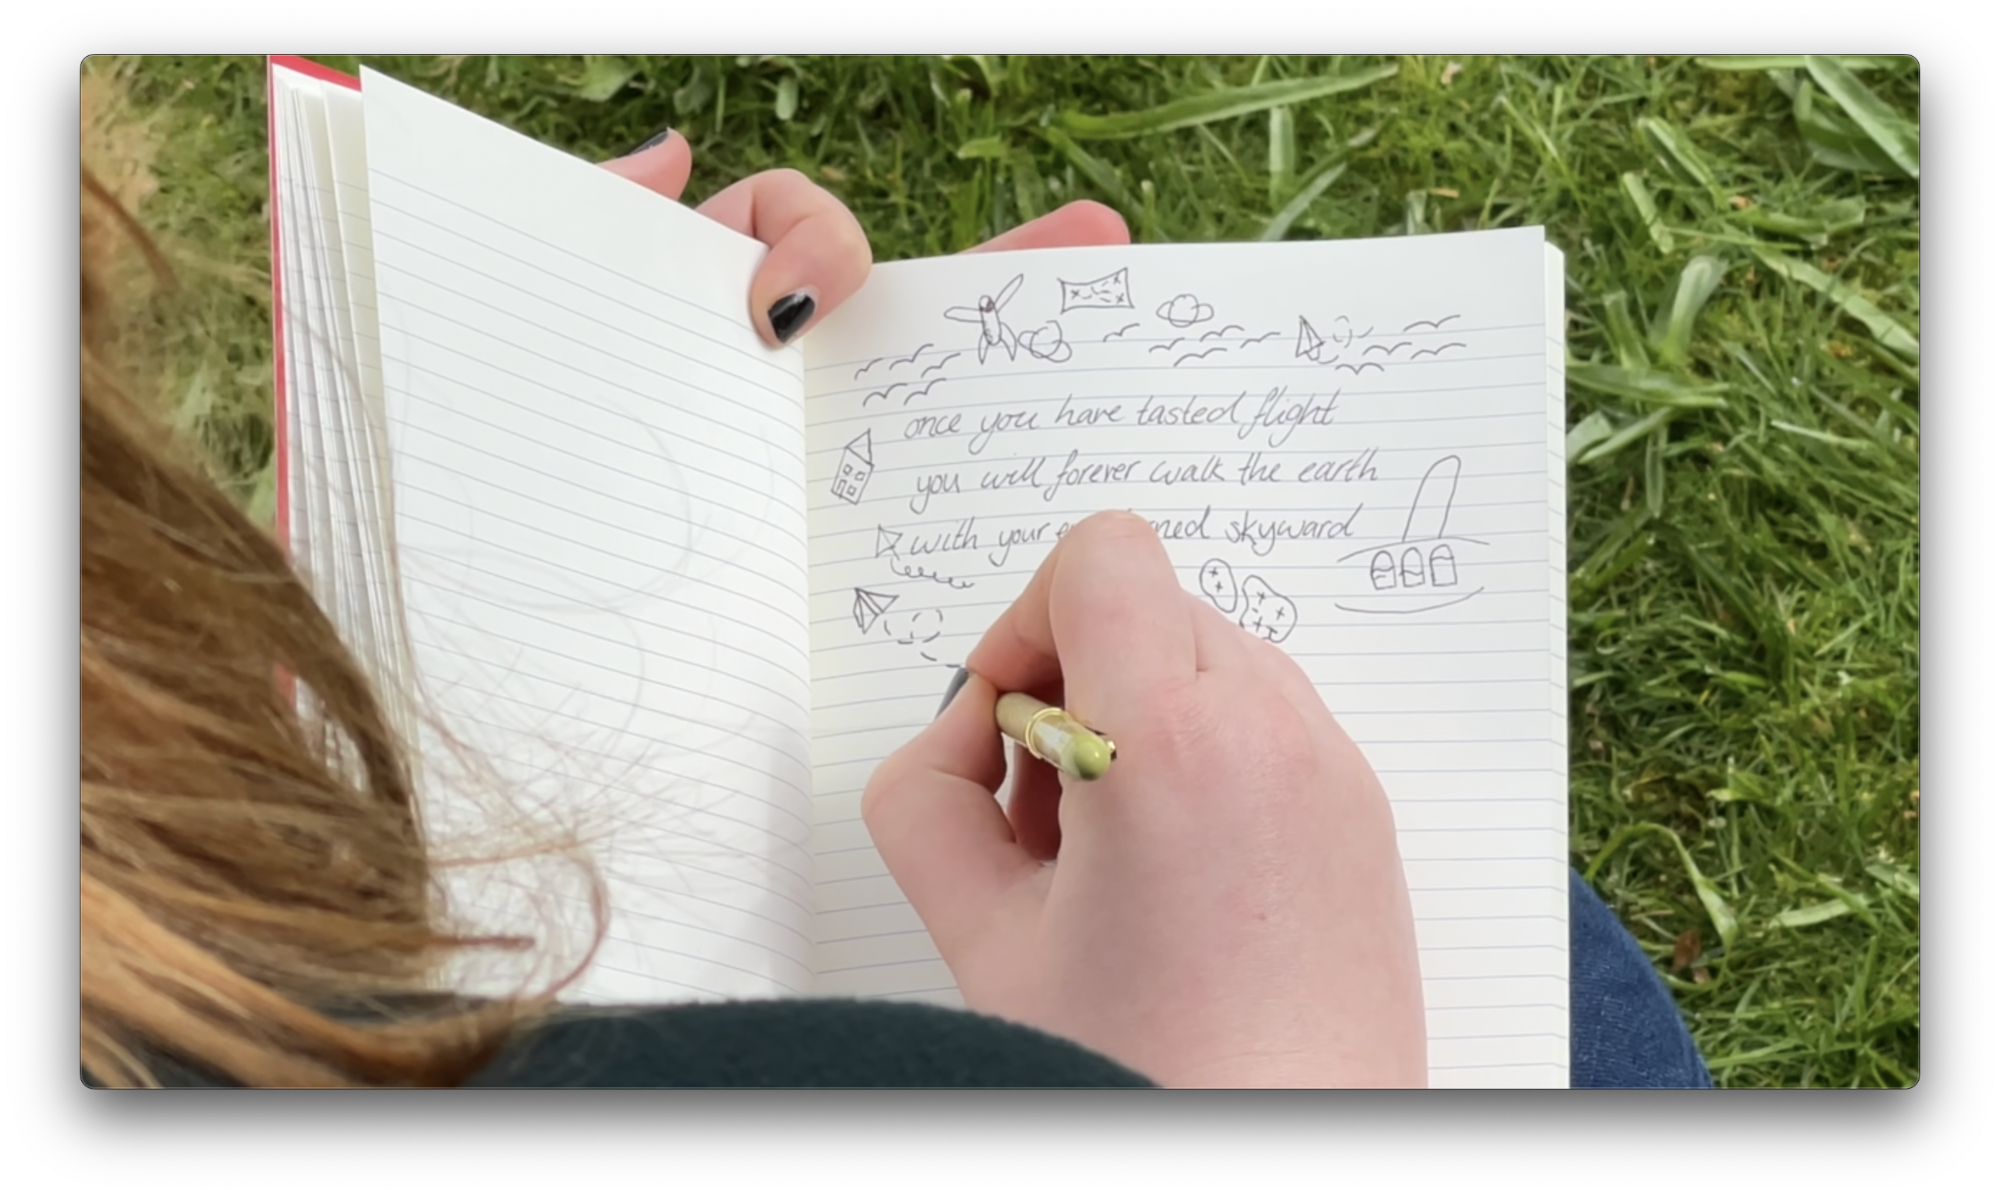 once you have tasted flight
you will forever walk the earth
with your skyward